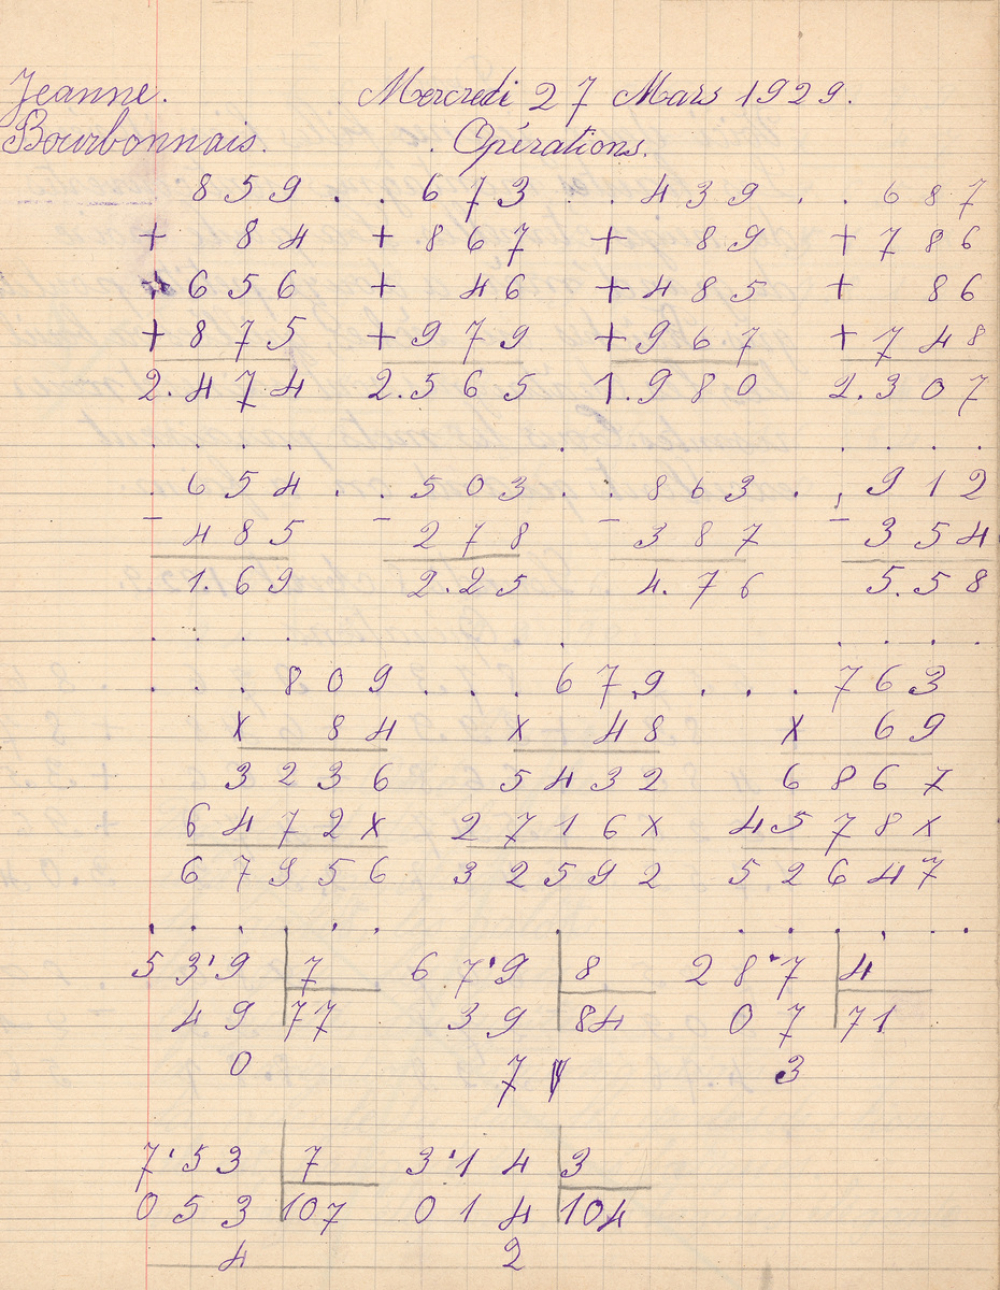 Jeanne. Mercredi 27 Mars 1929.
Bourbonnais. Opérations.
859 . . 673 . . 439 . . 687
+ 84 + 867 + 89 + 786
+ 656 + 46 + 485 + 86
+ 875 + 979 + 967 + 748
2.474 2.565 1.980 2.307
. 654 . . 503 . . 863 . . 912
- 485 - 278 - 387 - 354
1.69 2.25 4.76 5.58
. . . 809 . . . 679 . . . 763
x 84 x 48 x 69
3236 5432 6867
6472x 2716x 4578x
67956 32592 52647
53'9 7 67'9 8 28'7 4
49 77 39 84 07 71
0 7 3
7'53 7 3'14 3
053 107 014 104
4 2